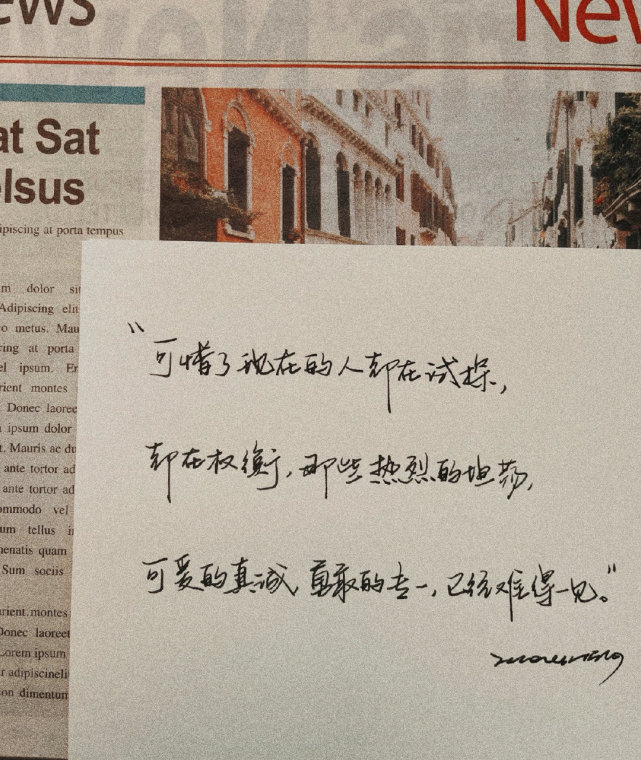 ews
New
at Sat
elsus
ipiscing at porta tempus
m dolor sit
Adipiscing elit
o metus. Mau
cing at porta
el ipsum.
rient montes
Donec laoree
ipsum dolor
t. Mauris ac du
ante tortor ad
ante tortor ad
ommodo vel
um tellus
enatis quam
Sum sociis
urient.montes
Donec laoreet
Lorem ipsum
r adipiscineli
on dimentum
"可惜了现在的人都在试探,
都在权衡,那些热烈的坦荡,
可爱的真诚 勇敢的专一,已经难得一见。"